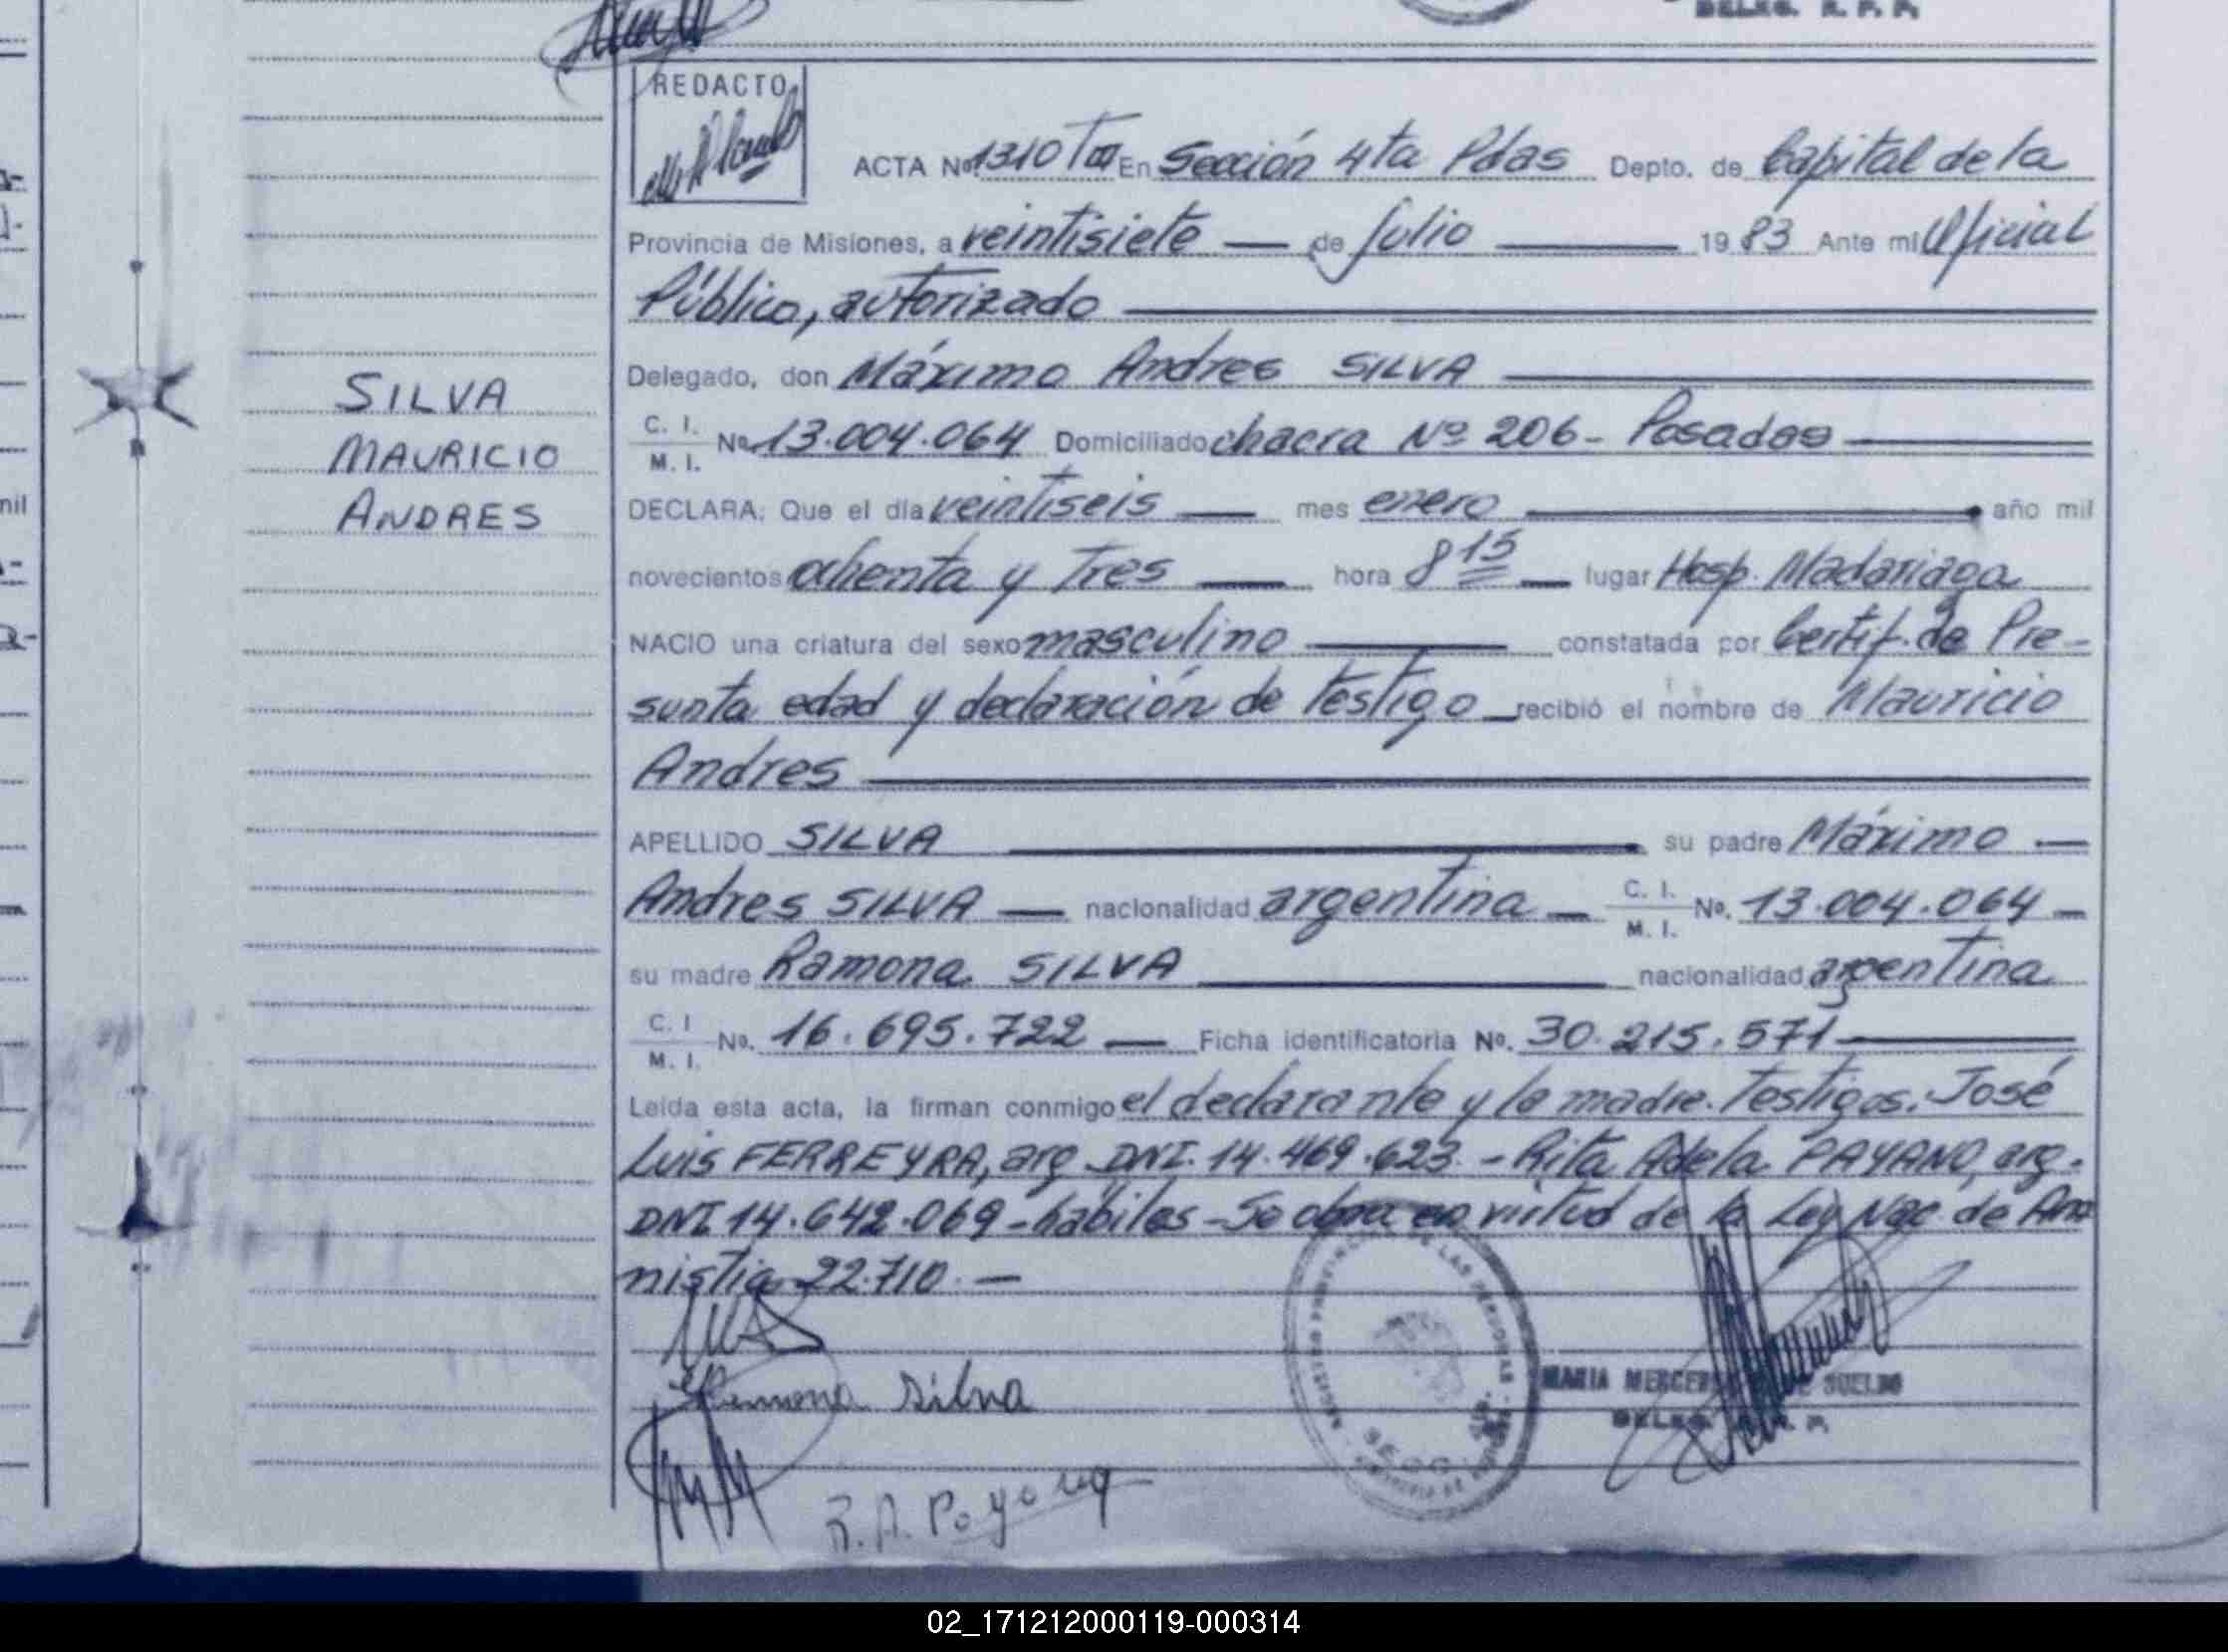 DELEG. R. P. P.
REDACTO
ACTA Nº 1310 En Sección 4ta Pdas Depto. de Capital de la
Provincia de Misiones, a veintisiete — de Julio — 1983 Ante mi Oficial
Público, autorizado
Delegado, don Máximo Andres SILVA
C. I.
M. I. Nº 13.004.064 Domiciliado chacra Nº 206 - Posadas
DECLARA: Que el día veintiseis — mes enero — año mil
novecientos ochenta y Tres — hora 8 15 — lugar Hosp. Madariaga
NACIO una criatura del sexo masculino — constatada por Certif. de Pre-
sunta edad y declaración de Testigo — recibió el nombre de Mauricio
Andres
APELLIDO SILVA — su padre Máximo —
Andres SILVA — nacionalidad argentina — C. I.
M. I. Nº. 13.004.064 —
su madre Ramona SILVA — nacionalidad argentina
C. I
M. I. Nº. 16.695.722 — Ficha identificatoria Nº. 30.215.571
Leída esta acta, la firman conmigo el declarante y la madre. Testigos: José
Luis FERREYRA, arg. DNI. 14.469.623 - Rita Adela PAYANO, arg.
DNI 14.642.069 - hábiles - Se obra en virtud de la Ley Nac. de Am
nistia 22.710. —
Ramona Silva
R. A. Payano
DELEG. R. P. P.
SILVA
MAURICIO
ANDRES
nil
02_171212000119-000314